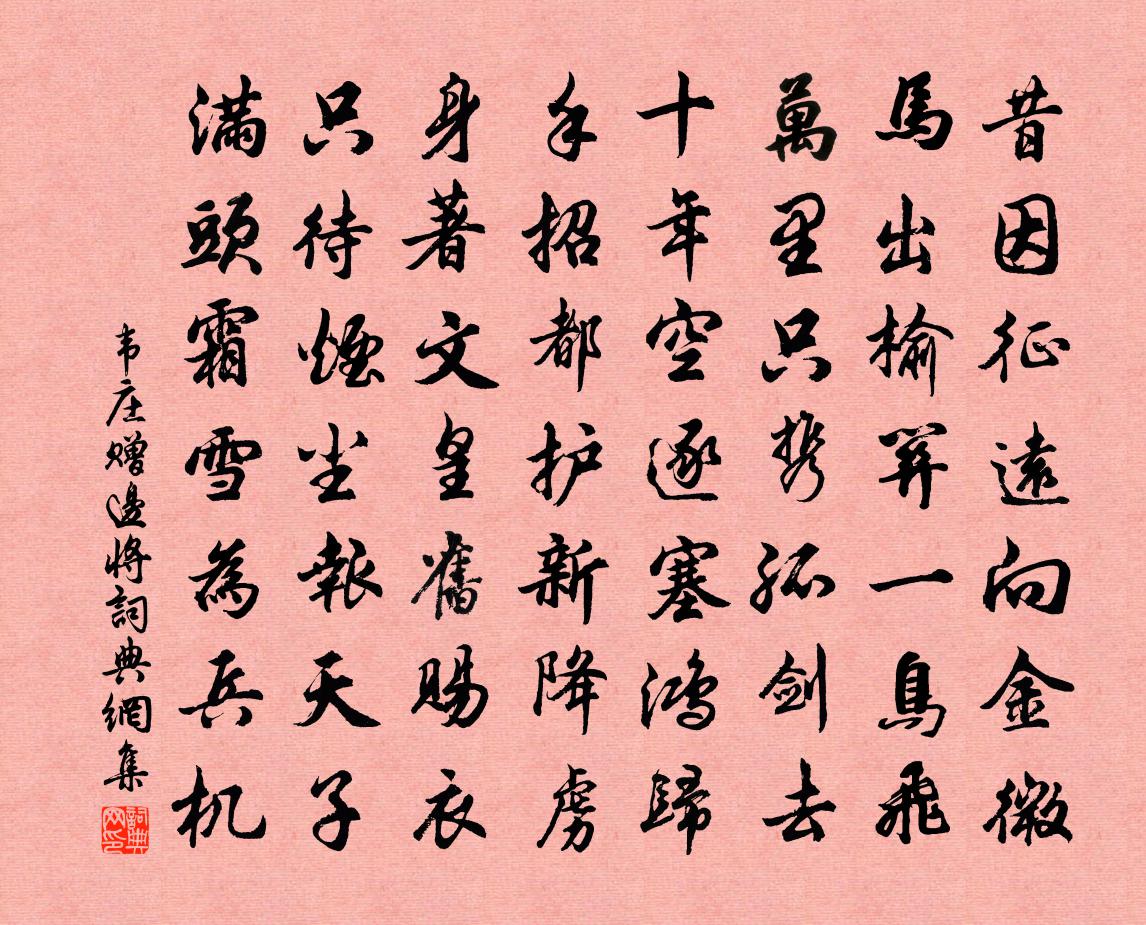 昔因征遠向金微
馬出榆關一鳥飛
萬里只携孤剑去
十年空逐塞鴻歸
手招都护新降虜
身著文皇舊賜衣
只待煙尘報天子
滿頭霜雪為兵机
韦庄贈邊將詞典網集
詞典网印